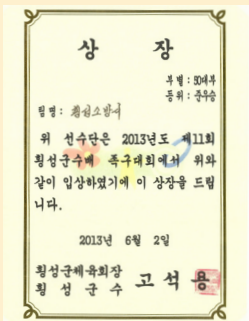 상 장
부 별 : 50대부
등 위 : 준우승
팀 명 : 횡성소방서
위 선수단은 2013년도 제11회
횡성군수배 족구대회에서 위와
같이 입상하였기에 이 상장을 드립
니다.
2013년 6월 2일
횡성군체육회장
횡 성 군 수 고 석 용